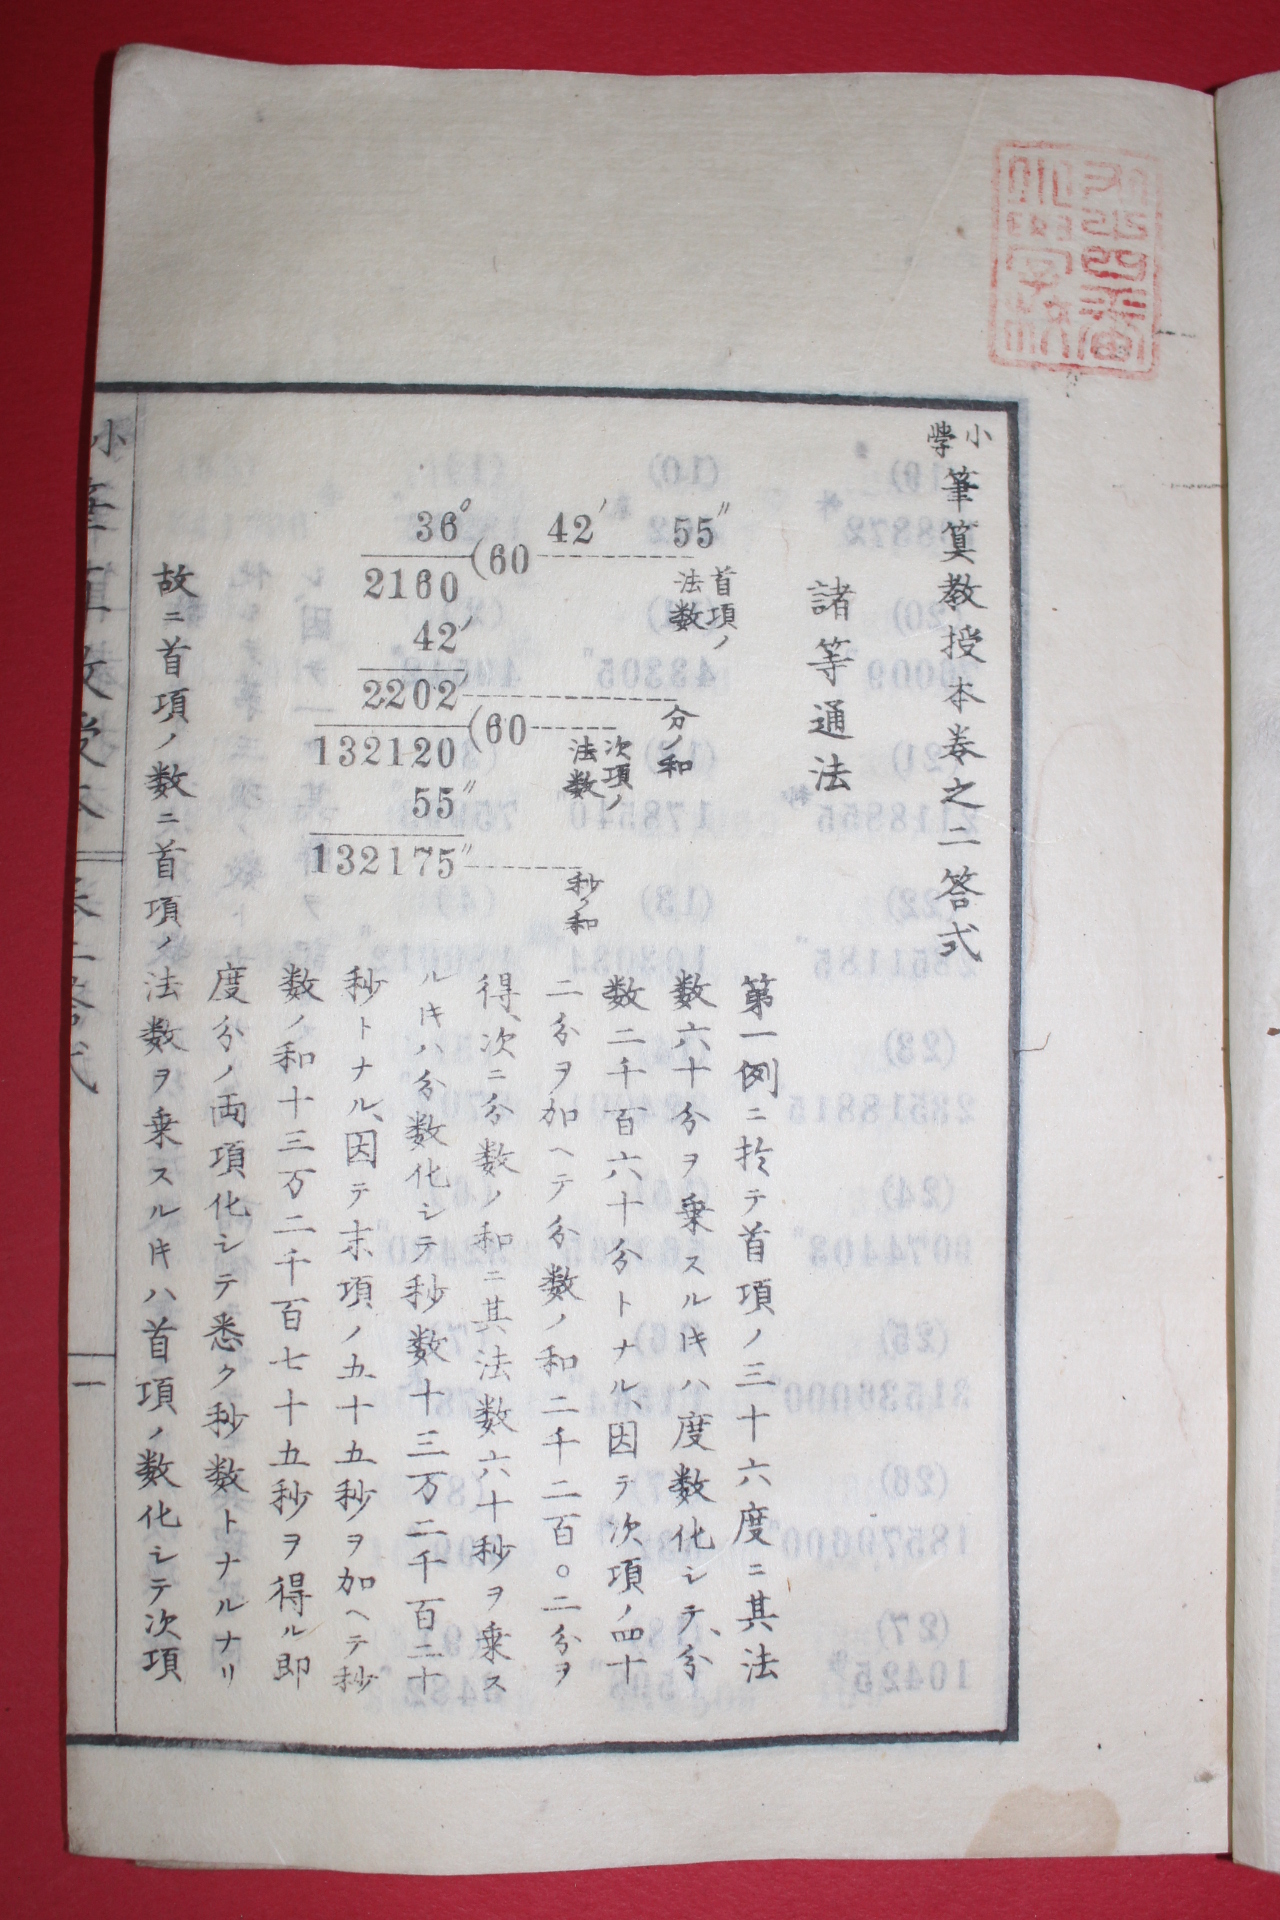 小学筆算教授本巻之二答式
諸等通法
36° 42′ 55″
(60 首項ノ法数
2160
42′
2202 分ノ和
(60 次項ノ法数
132120
55″
132175″ 秒ノ和
第一例ニ於テ首項ノ三十六度ニ其法
数六十分ヲ乗スルトキハ度数化シテ、分
数二千百六十分トナル、因テ次項ノ四十
二分ヲ加ヘテ分数ノ和二千二百〇二分ヲ
得、次ニ分数ノ和ニ其法数六十秒ヲ乗ス
ルトキハ分数化シテ秒数十三万二千百二十
秒トナル、因テ末項ノ五十五秒ヲ加ヘテ秒
数ノ和十三万二千百七十五秒ヲ得ル即
度分ノ両項化シテ悉ク秒数トナルナリ
故ニ首項ノ数ニ首項ノ法数ヲ乗スルトキハ首項ノ数化シテ次項
一